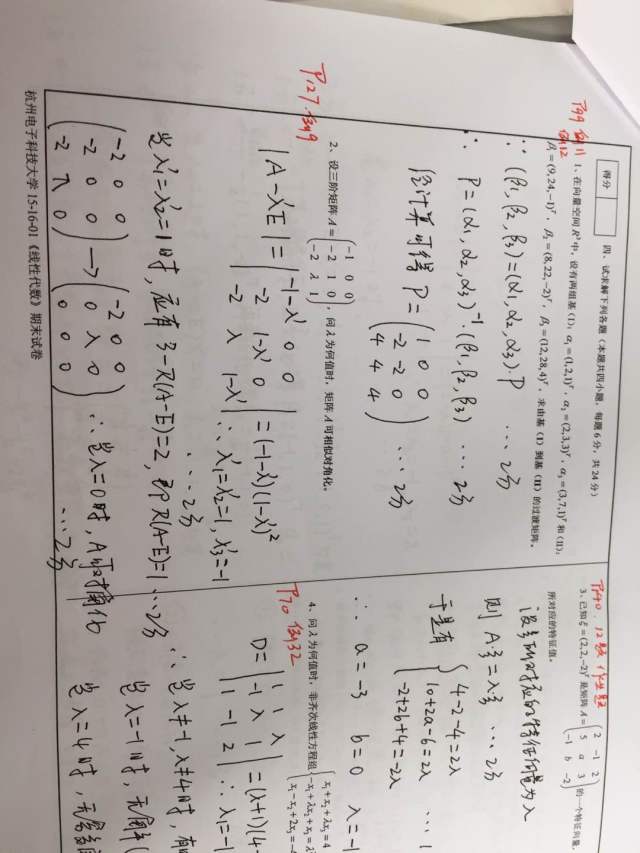 得分
四、试求解下列各题（本题共四小题，每题6分，共24分）
P99 例11
例12
1、在向量空间 R³中，设有两组基（I）：α₁=(1,2,1)ᵀ，α₂=(2,3,3)ᵀ，α₃=(3,7,1)ᵀ 和（II）：
β₁=(9,24,-1)ᵀ，β₂=(8,22,-2)ᵀ，β₃=(12,28,4)ᵀ，求由基（I）到基（II）的过渡矩阵。
∵ (β₁, β₂, β₃)=(α₁, α₂, α₃)·P ···2分
∴ P=(α₁, α₂, α₃)⁻¹·(β₁, β₂, β₃) ···2分
经计算可得 P=
1 0 0
-2 -2 0
4 4 4
···2分
P127. 例9
2、设三阶矩阵 A=
-1 0 0
-2 1 0
-2 λ 1
，问λ为何值时，矩阵 A 可相似对角化。
|A-λ'E|=
-1-λ' 0 0
-2 1-λ' 0
-2 λ 1-λ'
=(-1-λ')(1-λ')²
∴ λ'₁=λ'₂=1, λ'₃=-1
···2分
当λ'₁=λ'₂=1时, 应有 3-R(A-E)=2, 即 R(A-E)=1 ···2分
-2 0 0
-2 0 0
-2 λ 0
→
-2 0 0
0 λ 0
0 0 0
∴ 当λ=0时, A可对角化
···2分
P140. 12题 作业题
3、已知 ξ=(2,2,-2)ᵀ 是矩阵 A=
2 -1 2
5 a 3
-1 b -2
的一个特征向量，
所对应的特征值。
设ξ所对应的特征向量为λ
则 A·ξ=λ·ξ ···2分
于是有
4-2-4=2λ
10+2a-6=2λ
-2+2b+4=-2λ
··· 1
∴ a=-3 b=0 λ=-1
4、问λ为何值时，非齐次线性方程组
x₁+x₂+λx₃=4
-x₁+λx₂+x₃=λ
x₁-x₂+2x₃=-4
P70 例32
D=
1 1 λ
-1 λ 1
1 -1 2
=(λ+1)(4-
∴ λ₁=-1
∴ 当λ≠-1, λ≠4时, 有
当λ=-1时, 无解
当λ=4时, 无穷多
杭州电子科技大学 15-16-01《线性代数》期末试卷